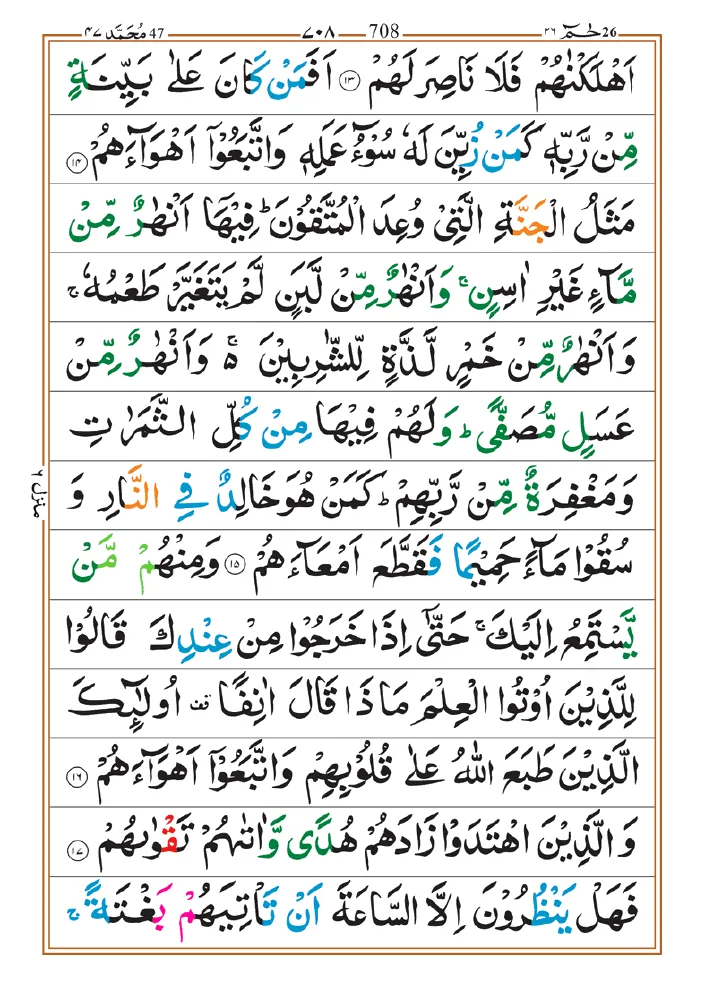 26 حٰمٓ ٢٦
708 ٧٠٨
47 مُحَمَّد ٤٧
اَهْلَكْنٰهُمْ فَلَا نَاصِرَ لَهُمْ ۝١٣ اَفَمَنْ كَانَ عَلٰى بَيِّنَةٍ
مِّنْ رَّبِّهٖ كَمَنْ زُيِّنَ لَهٗ سُوْٓءُ عَمَلِهٖ وَاتَّبَعُوْٓا اَهْوَآءَهُمْ ۝١٤
مَثَلُ الْجَنَّةِ الَّتِىْ وُعِدَ الْمُتَّقُوْنَ ؕ فِيْهَآ اَنْهٰرٌ مِّنْ
مَّآءٍ غَيْرِ اٰسِنٍ ۚ وَاَنْهٰرٌ مِّنْ لَّبَنٍ لَّمْ يَتَغَيَّرْ طَعْمُهٗ ۚ
وَاَنْهٰرٌ مِّنْ خَمْرٍ لَّذَّةٍ لِّلشّٰرِبِيْنَ ۬ۚ وَاَنْهٰرٌ مِّنْ
عَسَلٍ مُّصَفًّى ؕ وَلَهُمْ فِيْهَا مِنْ كُلِّ الثَّمَرٰتِ
وَمَغْفِرَةٌ مِّنْ رَّبِّهِمْ ؕ كَمَنْ هُوَ خَالِدٌ فِى النَّارِ وَ
سُقُوْا مَآءً حَمِيْمًا فَقَطَّعَ اَمْعَآءَهُمْ ۝١٥ وَمِنْهُمْ مَّنْ
يَّسْتَمِعُ اِلَيْكَ ۚ حَتّٰٓى اِذَا خَرَجُوْا مِنْ عِنْدِكَ قَالُوْا
لِلَّذِيْنَ اُوْتُوا الْعِلْمَ مَاذَا قَالَ اٰنِفًا قف اُولٰٓئِكَ
الَّذِيْنَ طَبَعَ اللّٰهُ عَلٰى قُلُوْبِهِمْ وَاتَّبَعُوْٓا اَهْوَآءَهُمْ ۝١٦
وَالَّذِيْنَ اهْتَدَوْا زَادَهُمْ هُدًى وَّاٰتٰىهُمْ تَقْوٰىهُمْ ۝١٧
فَهَلْ يَنْظُرُوْنَ اِلَّا السَّاعَةَ اَنْ تَاْتِيَهُمْ بَغْتَةً ۚ
منزل ٦